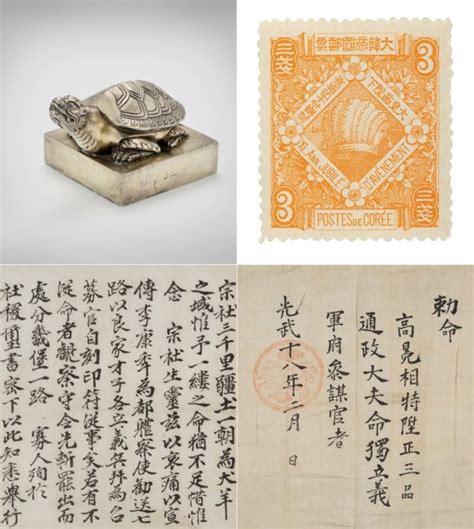 大韓帝國郵票
三錢 3
3 三錢
XL ANN. DU JUBILÉ
D'AVÈNEMENT
POSTES DE CORÉE
宗社三千里疆土一朝為犬羊
之域惟予一縷之命猶不足惜惟
念 宗社生靈茲以哀痛以宣
傳李康年為都軆察使勸送七
路以良家才子各立義兵拜為召
募官自刻印符從事矣若有不
從命者觀察守令先斬罷出而
處分畿堡一路 寡人殉於
社稷璽書密下以此知悉舉行
勅命
高晃相特陞正三品
通政大夫命獨立義
軍府參謀官者
光武十八年 月 日